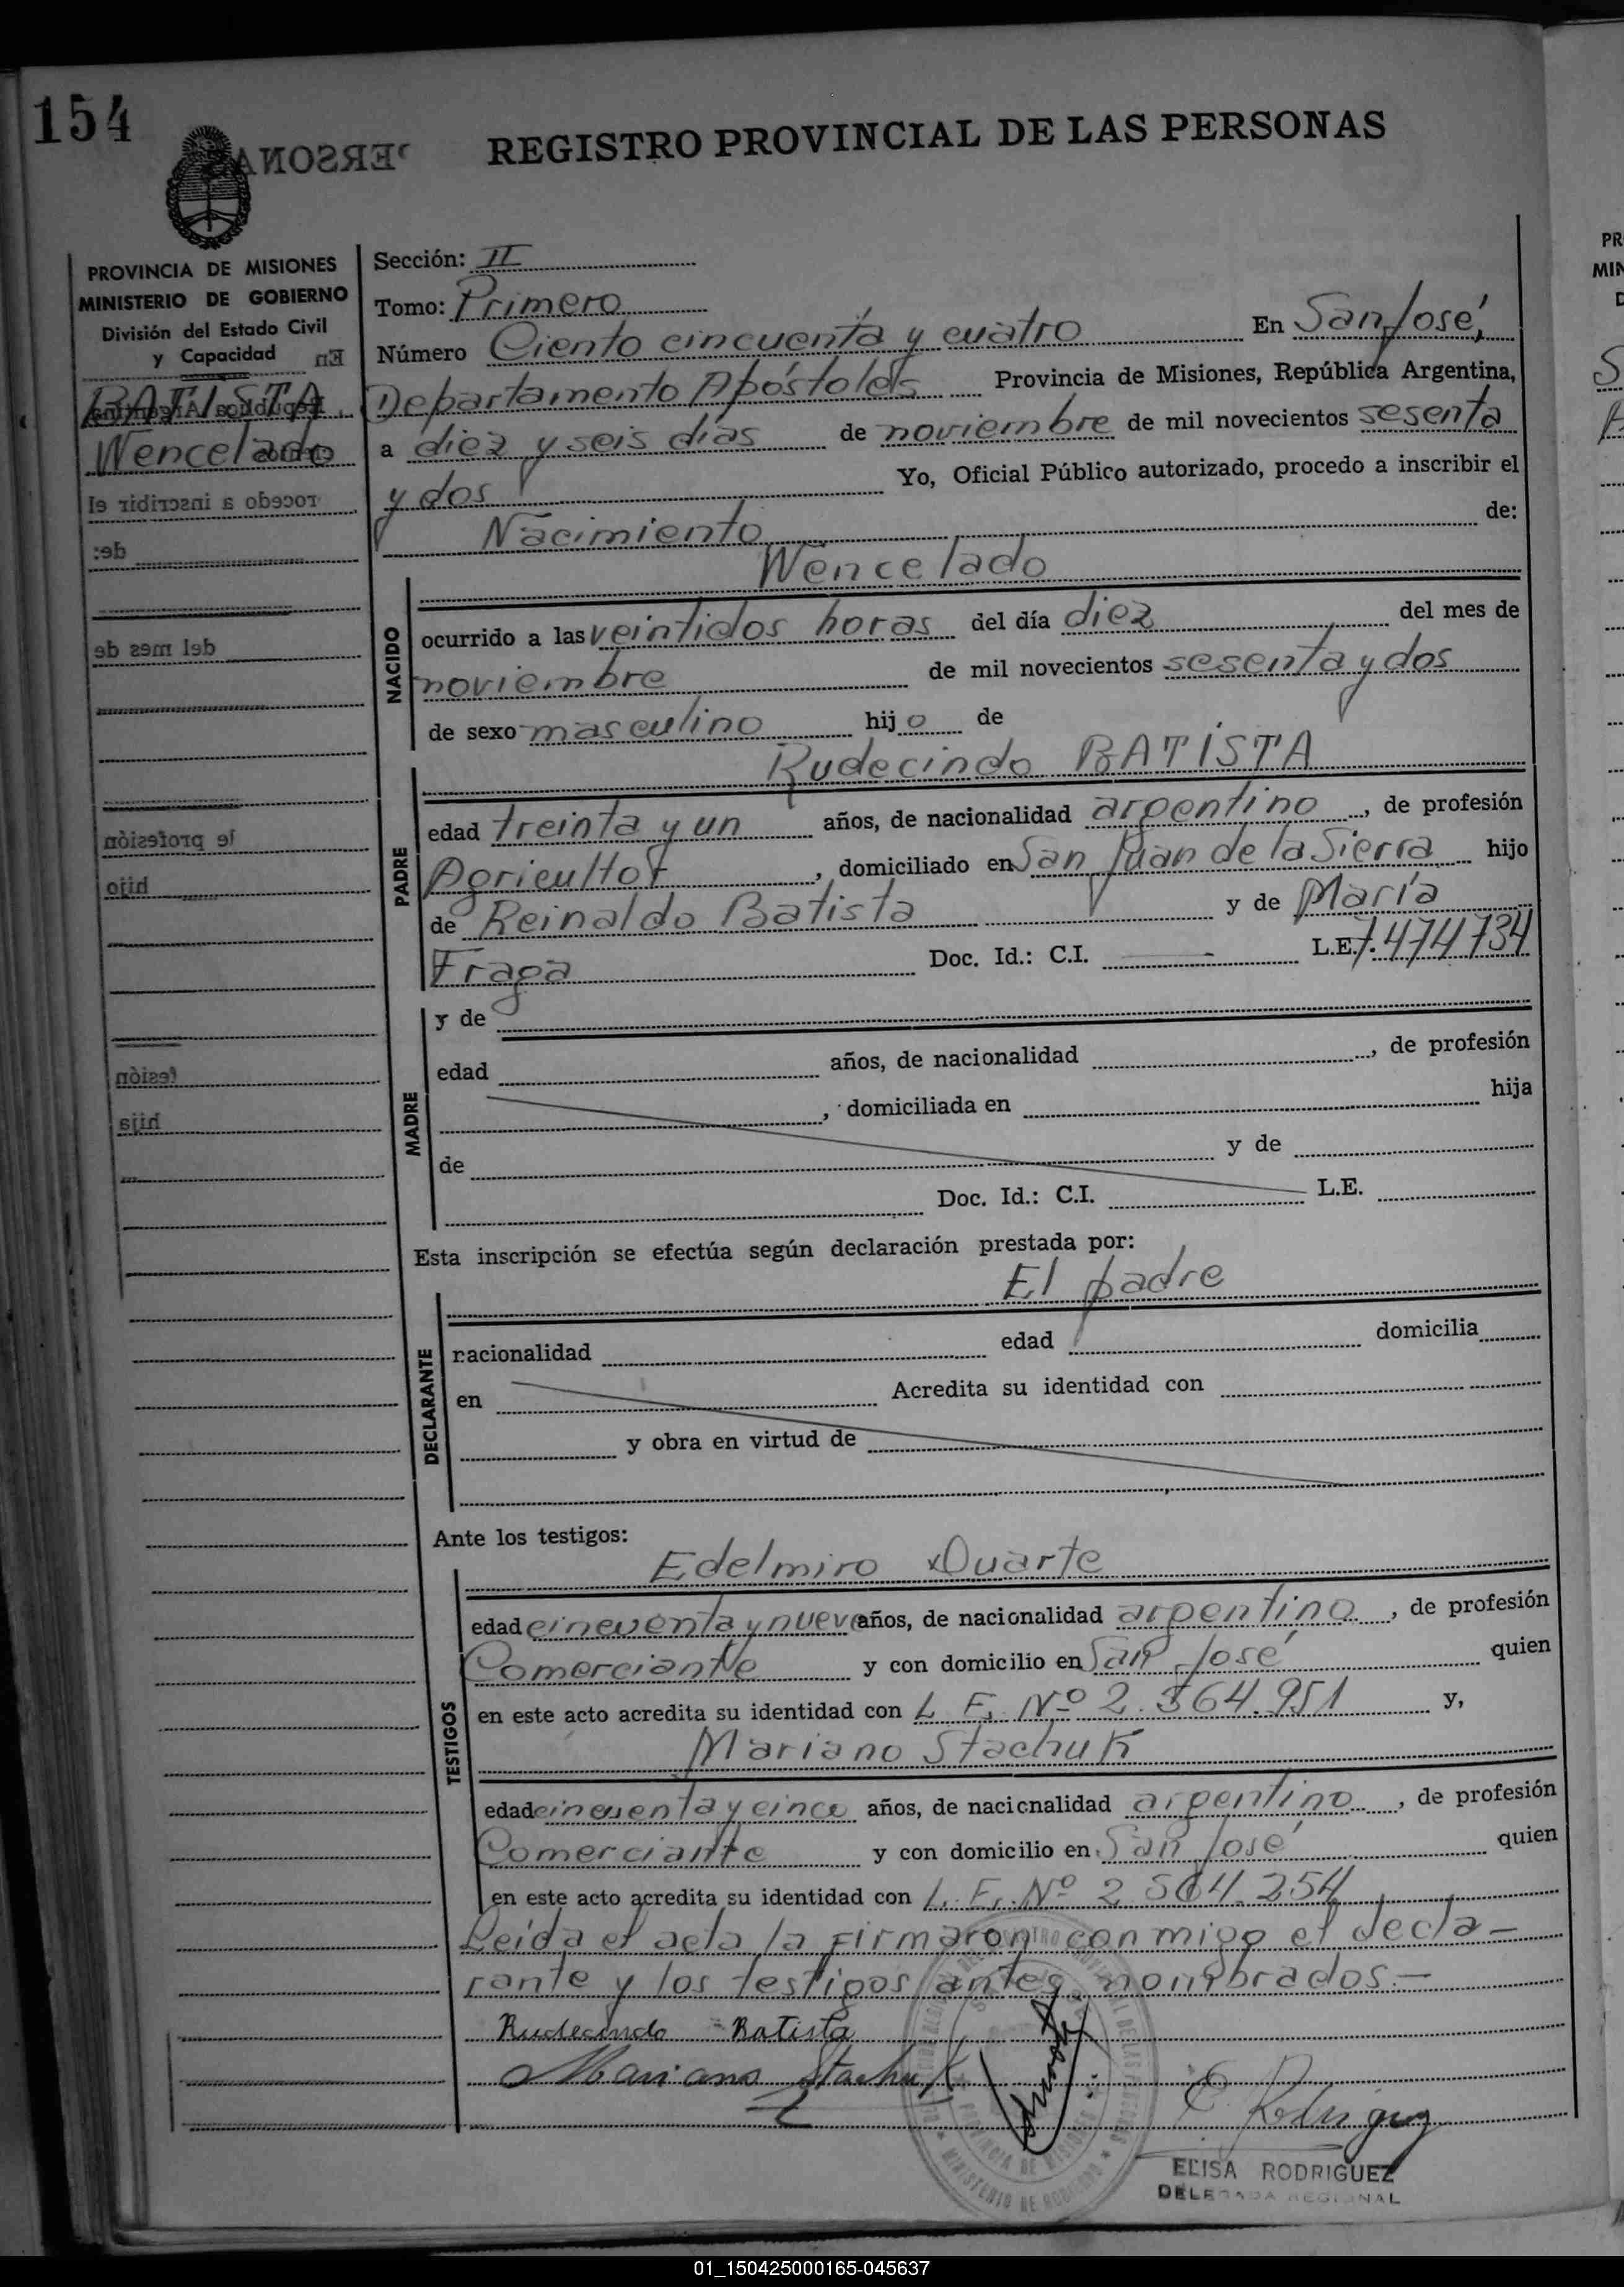 154
REGISTRO PROVINCIAL DE LAS PERSONAS
PROVINCIA DE MISIONES
MINISTERIO DE GOBIERNO
División del Estado Civil
y Capacidad
BATISTA
Wencelado
Sección: II
Tomo: Primero
Número Ciento cincuenta y cuatro En San José,
Departamento Apóstoles Provincia de Misiones, República Argentina,
a diez y seis días de noviembre de mil novecientos sesenta
y dos Yo, Oficial Público autorizado, procedo a inscribir el
Nacimiento de:
Wencelado
NACIDO
ocurrido a las veintidos horas del día diez del mes de
noviembre de mil novecientos sesenta y dos
de sexo masculino hijo de
Rudecindo BATISTA
PADRE
edad treinta y un años, de nacionalidad argentino, de profesión
Agricultor, domiciliado en San Juan de la Sierra hijo
de Reinaldo Batista y de María
Fraga Doc. Id.: C.I. — L.E. 7.474734
MADRE
y de
edad años, de nacionalidad , de profesión
, domiciliada en hija
de y de
Doc. Id.: C.I. L.E.
Esta inscripción se efectúa según declaración prestada por:
El padre
DECLARANTE
nacionalidad edad domicilia
en Acredita su identidad con
y obra en virtud de
Ante los testigos:
Edelmiro Duarte
TESTIGOS
edad cincuenta y nueve años, de nacionalidad argentino, de profesión
Comerciante y con domicilio en San José quien
en este acto acredita su identidad con L. E. Nº 2.564.951 y,
Mariano Stachuk
edad cincuenta y cinco años, de nacionalidad argentino, de profesión
Comerciante y con domicilio en San José quien
en este acto acredita su identidad con L. E. Nº 2.564.254
Leída el acta la firmaron conmigo el decla-
rante y los testigos antes nombrados.—
Rudecindo Batista
Mariano Stachuk
E. Rodriguez
ELISA RODRIGUEZ
DELEGADA REGIONAL
01_150425000165-045637